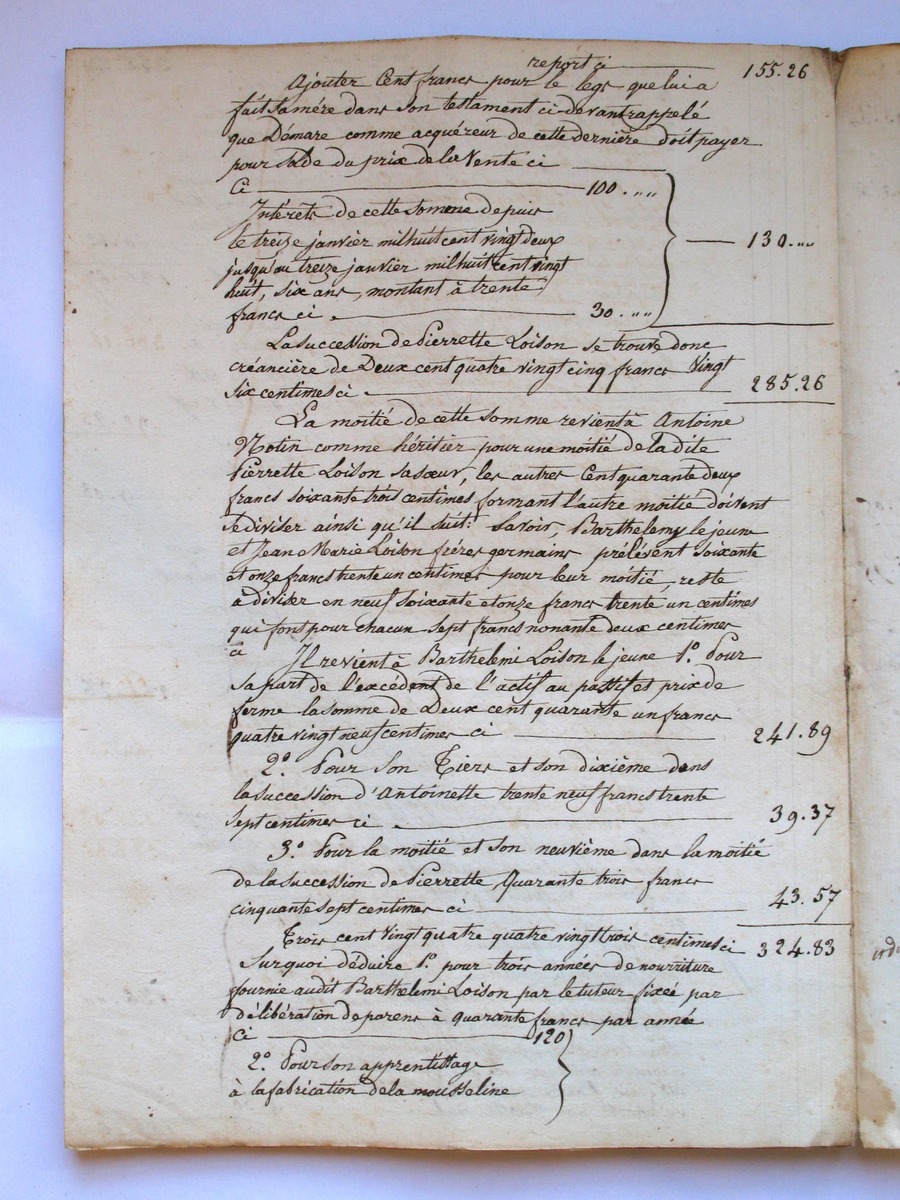 report ci 155.26
Ajouter Cent francs pour le legs que lui a
fait Samére dans son testament ci-devant rappelé
que Démare comme acquéreur de cette derniére doit payer
pour Solde du prix de la Vente ci
Ci 100.""
Intérêts de cette somme depuis
le treize janvier mil huit cent vingt deux
jusqu'au treize janvier mil huit cent vingt
huit, six ans, montant à trente
francs ci 30.""
130.""
La succession de Pierrette Loison se trouve donc
créancière de Deux cent quatre vingt cinq francs Vingt
Six centimes ci 285.26
La moitié de cette somme revient à Antoine
Notin comme héritier pour une moitié de la dite
Pierrette Loison sa sœur, les autres Cent quarante deux
francs soixante trois centimes formant l'autre moitié doivent
se diviser ainsi qu'il suit: Savoir, Barthelemy le jeune
et Jean Marie Loison fréres germains prélèvent soixante
et onze francs trente un centimes pour leur moitié, reste
à diviser en neuf soixante et onze francs trente un centimes
qui font pour chacun sept francs nonante deux centimes
ci
Il revient à Barthelemi Loison le jeune 1.° Pour
sa part de l'excédent de l'actif au passif et prix de
ferme la somme de Deux cent quarante un francs
quatre vingt neuf centimes ci 241.89
2.° Pour Son Tiers et son dixième dans
la succession d'Antoinette trente neuf francs trente
sept centimes ci 39.37
3.° Pour la moitié et Son neuvième dans la moitié
de la succession de Pierrette, Quarante trois francs
cinquante sept centimes ci 43.57
Trois cent Vingt quatre quatre vingt trois centimes ci 324.83
Sur quoi déduire 1.° pour trois années de nourriture
fournie audit Barthelemi Loison par le tuteur fixée par
délibération de parens à quarante francs par année
Ci 120
2.° Pour son apprentissage
à la fabrication de la mousseline